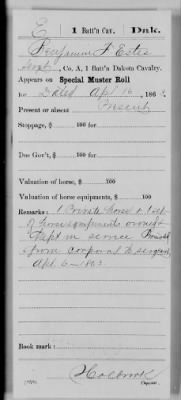 E | 1 Batt'n Cav. | Dak.
Benjamin F Estes
Serg't, Co. A, 1 Batt'n Dakota Cavalry.
Appears on Special Muster Roll
for Dated Apl 16, 186
Present or absent Present
Stoppage, $ 100 for
Due Gov't, $ 100 for
Valuation of horse, $ 100
Valuation of horse equipments, $ 100
Remarks: 1 Private horse & 1 set
of horse equipments owned &
kept in service
from corporal to sergeant
Apl 6 - 1863
Book mark:
Holbrook
Copyist.